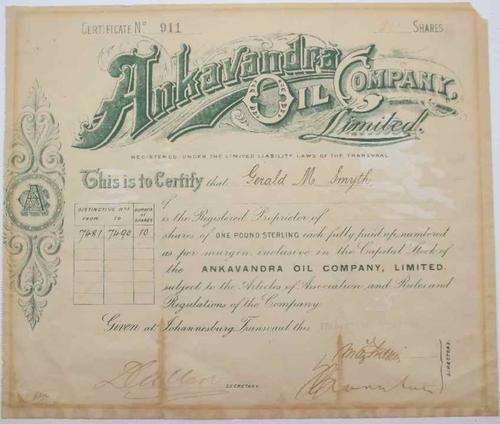 CERTIFICATE Nº 911 SHARES
Ankavandra
OIL COMPANY,
Limited.
REGISTERED UNDER THE LIMITED LIABILITY LAWS OF THE TRANSVAAL
This is to Certify that Gerald M Smyth
is the Registered Proprietor of
shares of ONE POUND STERLING each fully paid up, numbered
as per margin, inclusive in the Capital Stock of
the ANKAVANDRA OIL COMPANY, LIMITED
subject to the Articles of Association and Rules and
Regulations of the Company.
Given at Johannesburg Transvaal this
DISTINCTIVE Nºs NUMBER OF SHARES
FROM TO
7481 7490 10
SECRETARY.
DIRECTORS.